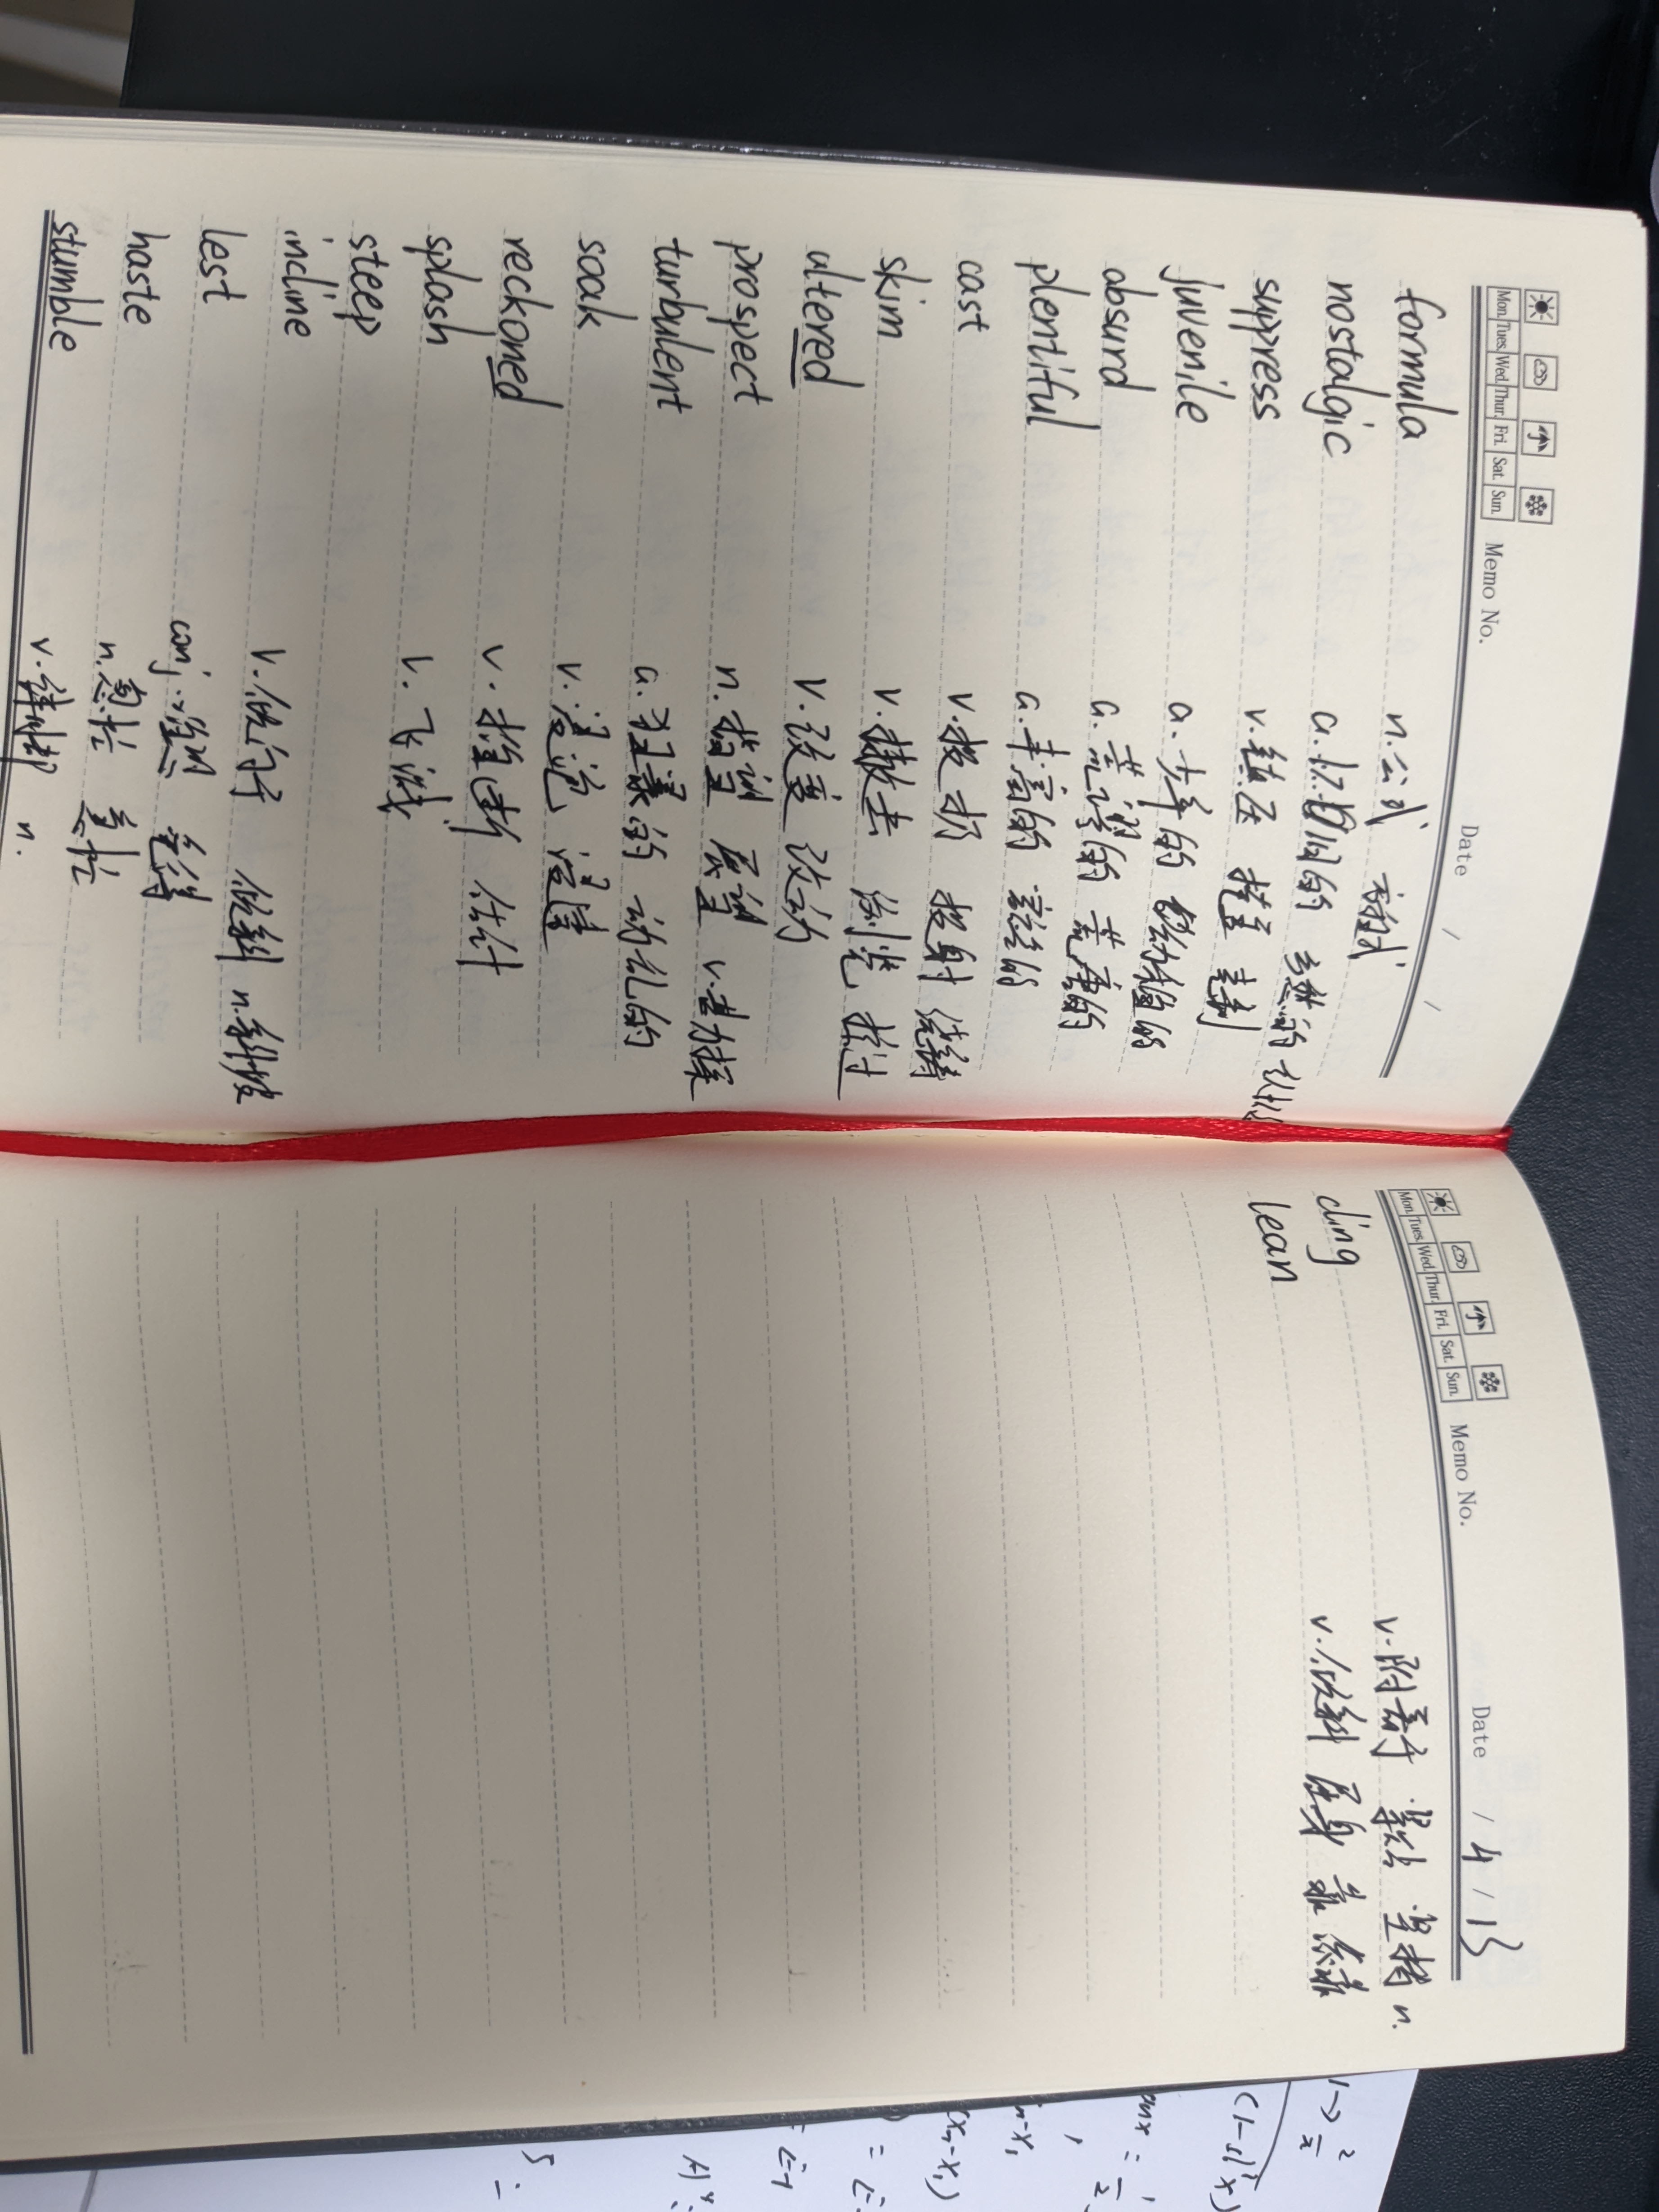 Mon. Tues. Wed. Thur. Fri. Sat. Sun.
Memo No.
Date / /
formula n.公式
nostalgic a.怀旧的
suppress v.镇压
juvenile a.少年的 幼稚的
absurd a.荒谬的 荒唐的
plentiful a.丰富的
cast v.投掷 投射 浇铸
skim v.撇去 浏览 掠过
ultered v.改变 改动
prospect n.指望 展望 v.
turbulent a.狂暴的 动乱的
soak v.浸泡 浸湿
reckoned v.推断 估计
splash v.飞溅
steep
incline v.倾向于 倾斜 n.斜坡
lest conj. 唯恐 免得
haste n.急忙 匆忙
stumble v. n.
Mon. Tues. Wed. Thur. Fri. Sat. Sun.
Memo No.
Date / 4 / 13
v.附着于 紧贴 坚持 n.
cling v.倾斜 屈身 靠 依靠
lean